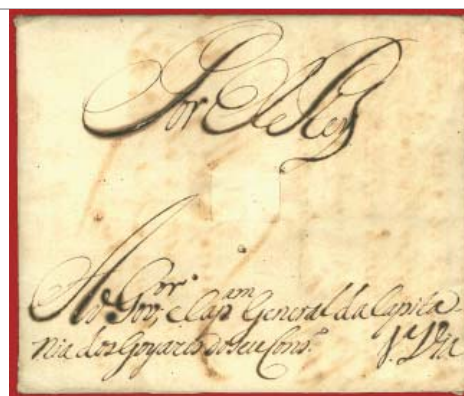 Por El Rey
Ao Gov.or e Cap.am General da Capita-
nia dos Goyazes do seu Cons.o 1.a Via